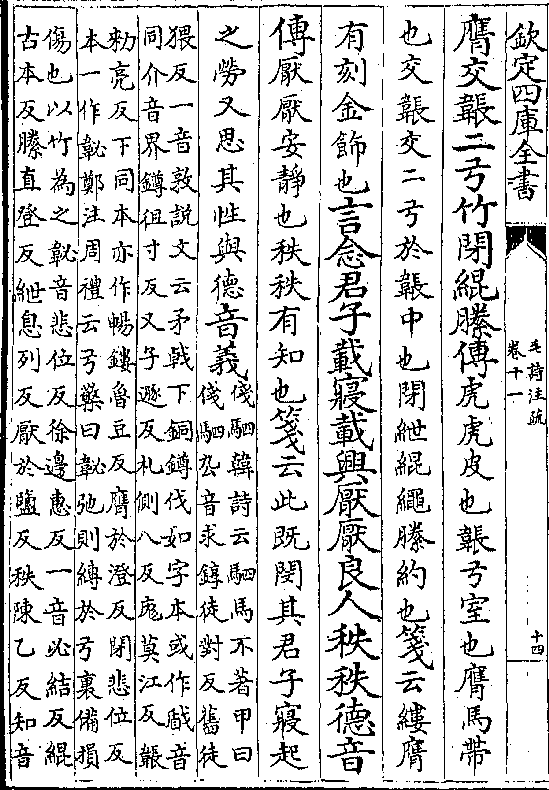 欽定四庫全書
毛詩注疏
卷十一
十四
膺交韔二弓竹閉緄縢傳虎虎皮也韔弓室也膺馬帶
也交韔交二弓於韔中也閉紲緄繩縢約也箋云縷膺
有刻金飾也言念君子載寢載興厭厭良人秩秩德音
傳厭厭安靜也秩秩有知也箋云此既閔其君子寢起
之勞又思其性與德音義俴駟韓詩云駟馬不著甲曰
俴駟厹音求錞徒對反舊徒
猥反一音敦説文云矛戟下銅鐏伐如字本或作瞂音
同介音界鐏徂寸反又子遯反札側八反尨莫江反韔
勑亮反下同本亦作暢鏤魯豆反膺於澄反閉悲位反
本一作䪐鄭注周禮云弓檠曰䪐弛則縛於弓裏備損
傷也以竹為之䪐音悲位反徐邊惠反一音必結反緄
古本反縢直登反紲息列反厭於鹽反秩陳乙反知音